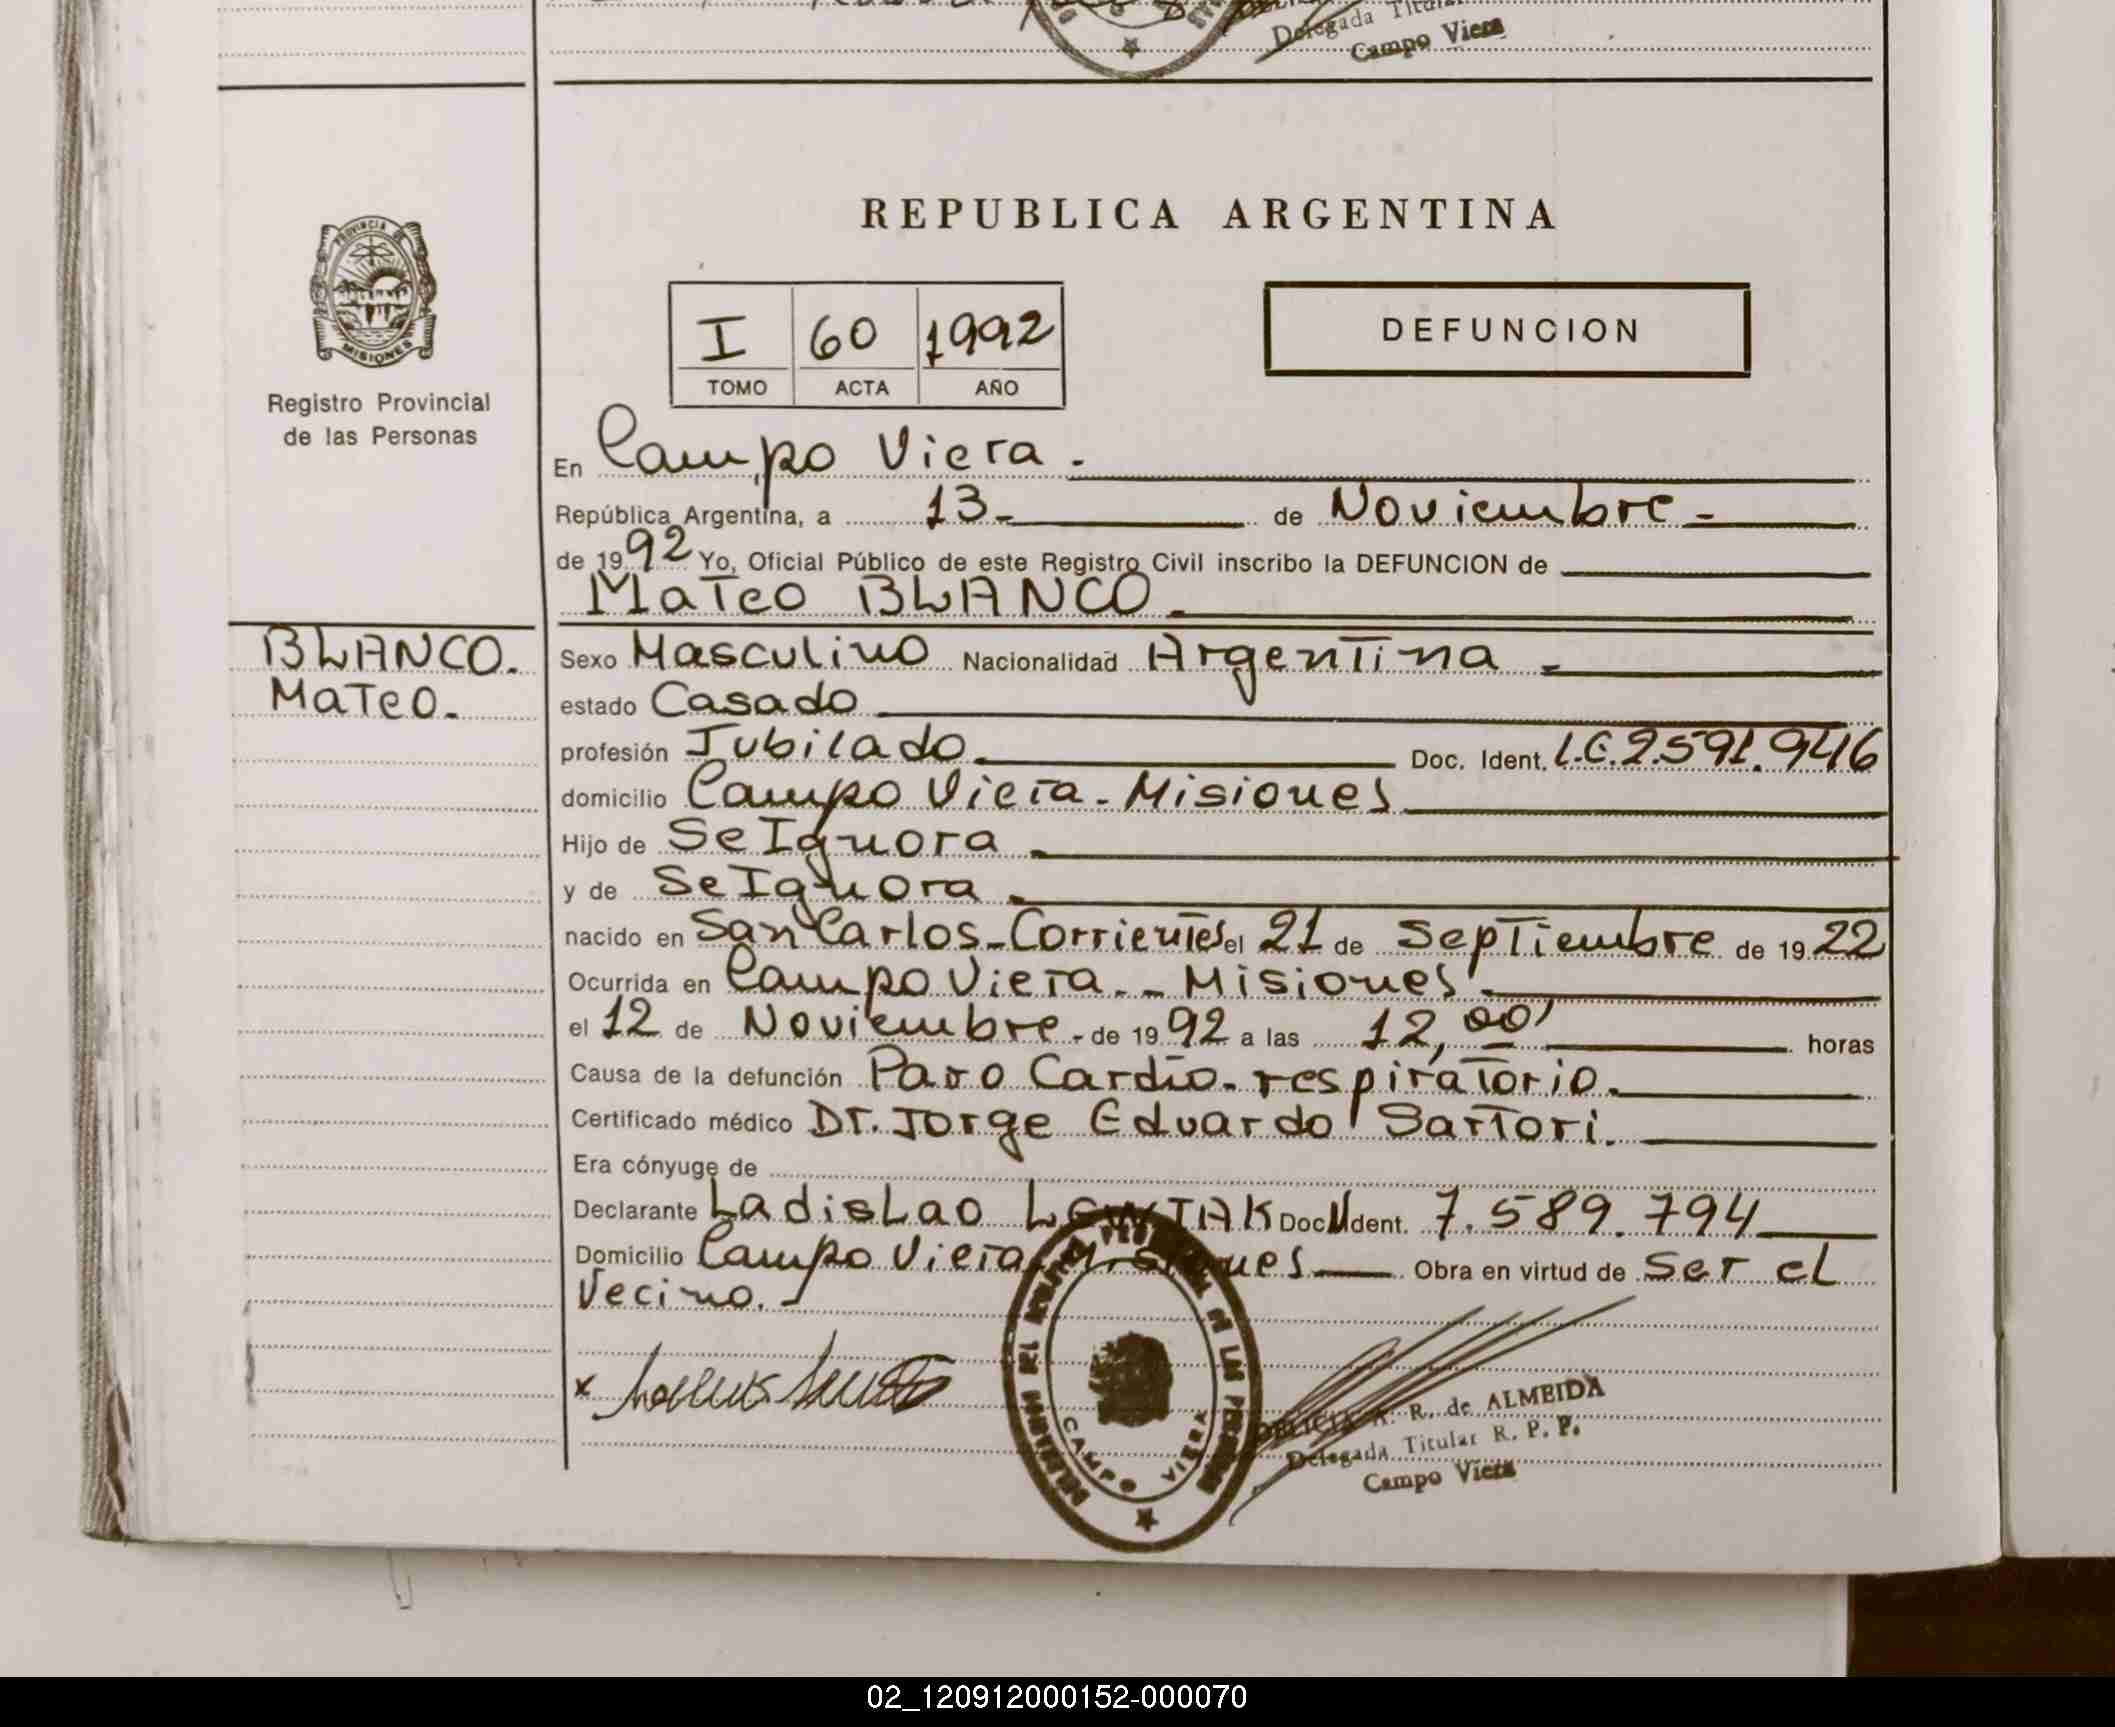 Delegada Titular
Campo Viera
PROVINCIA DE
MISIONES
Registro Provincial
de las Personas
REPUBLICA ARGENTINA
I 60 1992
TOMO ACTA AÑO
DEFUNCION
En Campo Viera.
República Argentina, a 13- de Noviembre-
de 1992 Yo, Oficial Público de este Registro Civil inscribo la DEFUNCION de
Mateo BLANCO.
BLANCO.
Mateo.
Sexo Masculino Nacionalidad Argentina
estado Casado
profesión Jubilado. Doc. Ident. L.E.2.591.946
domicilio Campo Viera-Misiones
Hijo de Se Ignora
y de Se Ignora
nacido en San Carlos-Corrientes el 21 de Septiembre de 1922
Ocurrida en Campo Viera.-Misiones
el 12 de Noviembre.-de 1992 a las 12,00' horas
Causa de la defunción Paro Cardio-respiratorio.
Certificado médico Dr. Jorge Eduardo Sartori.
Era cónyuge de
Declarante Ladislao Doc. Ident. 7.589.794
Domicilio Campo Viera Misiones Obra en virtud de ser el
Vecino.-
x
CAMPO VIERA
A. R. de ALMEIDA
Delegada Titular R. P. P.
Campo Viera
02_120912000152-000070